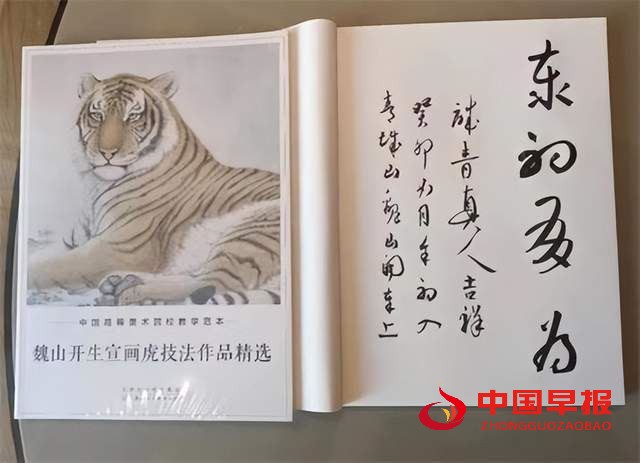 中国高等美术院校教学范本
魏山开生宣画虎技法作品精选
初 为
诚青真人吉祥
癸卯 月 初
青城山魏山開奉上
中国早报
ZHONGGUOZAOBAO